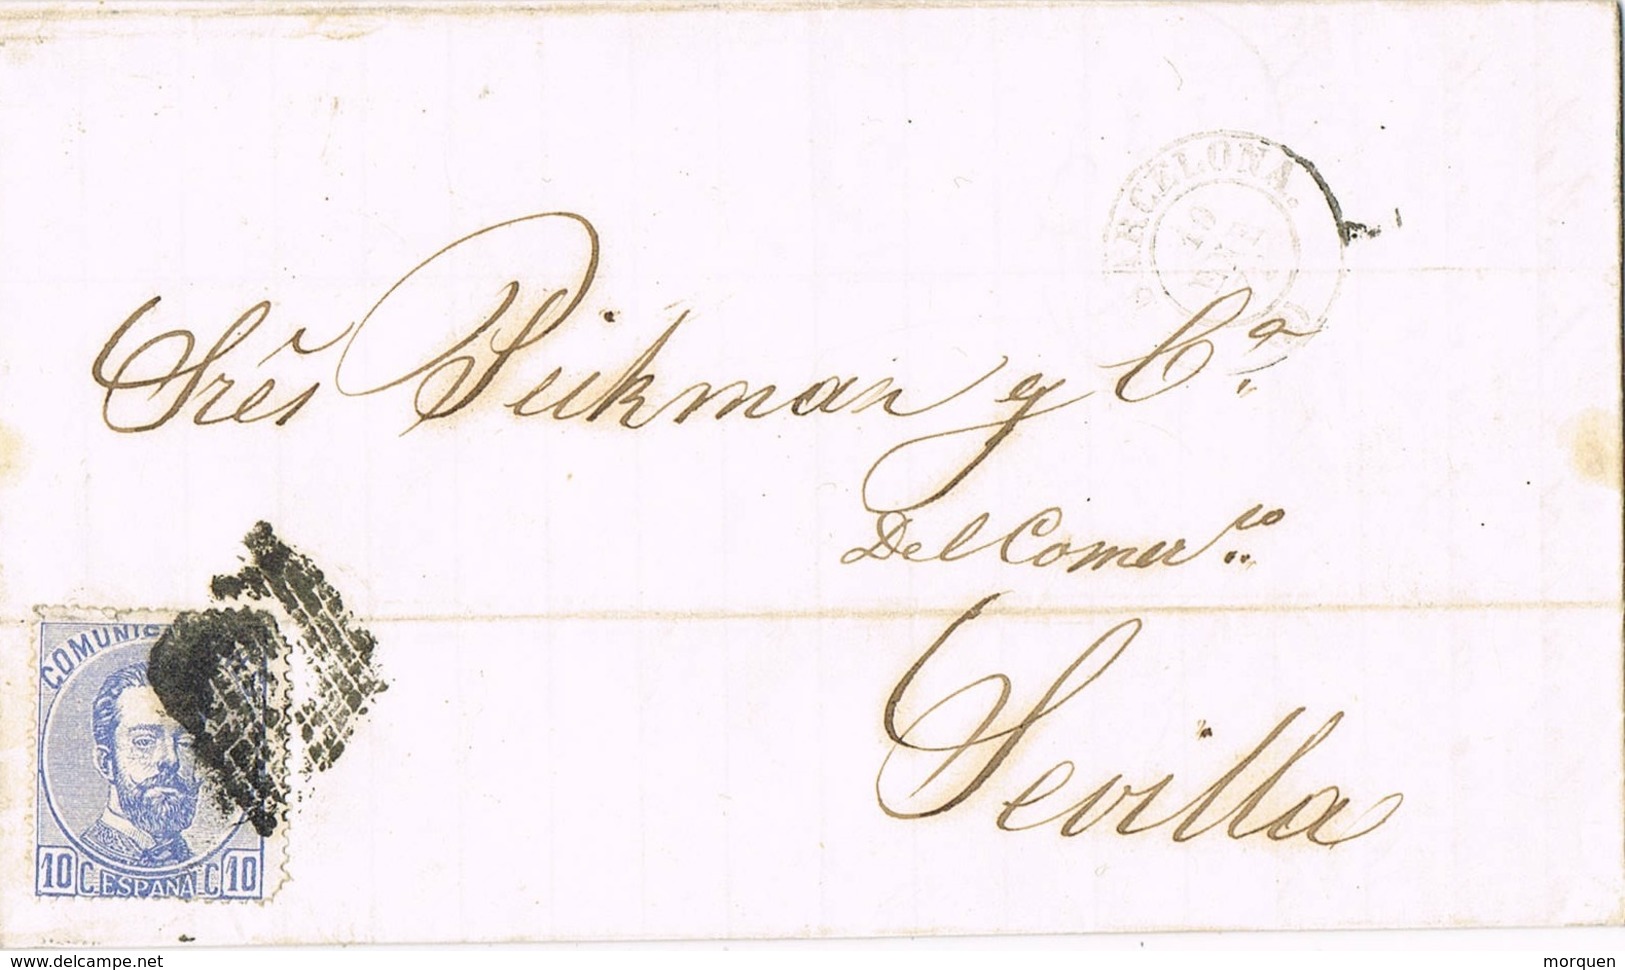 BARCELONA.
10
Sres Pickman y Ca.
Del Comerco
Sevilla
COMUNIC
10 C ESPAÑA C 10
www.delcampe.net
morquen